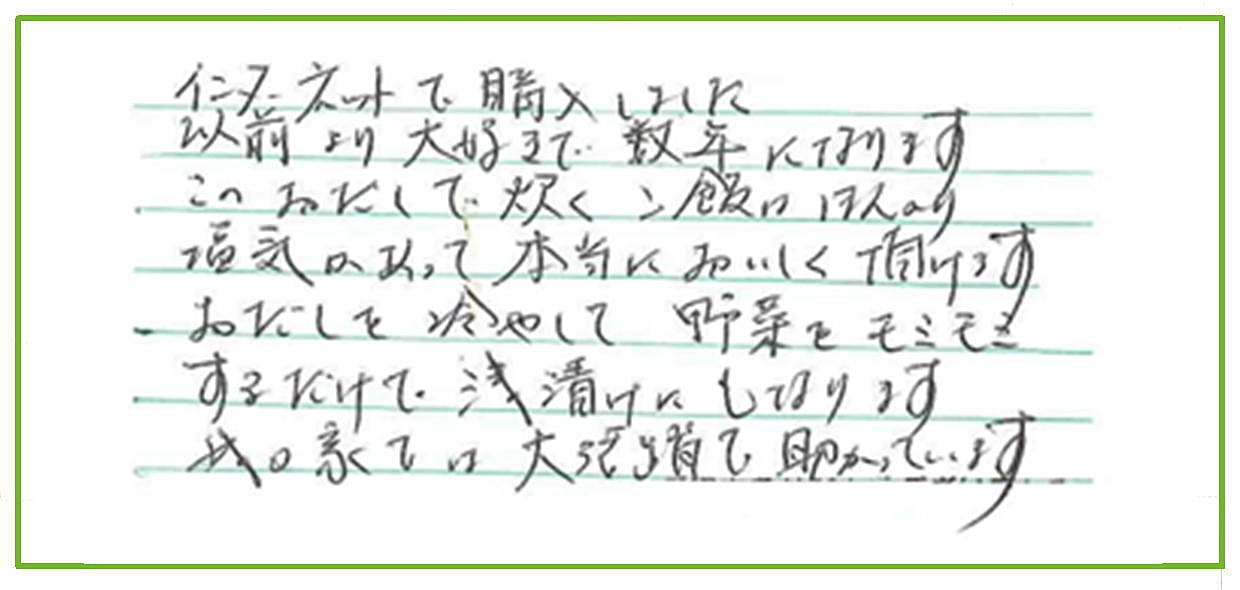 インターネットで購入しました
以前より大好きで数年になります
このおだしで炊くご飯はほんのり
塩気があって本当においしく頂けます
おだしを冷やして野菜をモミモミ
するだけで浅漬けにもなります
我が家では大活躍で助かっています